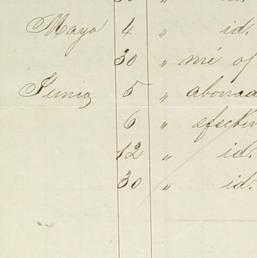 Mayo 4 " id.
30 " mi of
Junio 5 " abonad
6 " efectiv
12 " id.
30 " id.